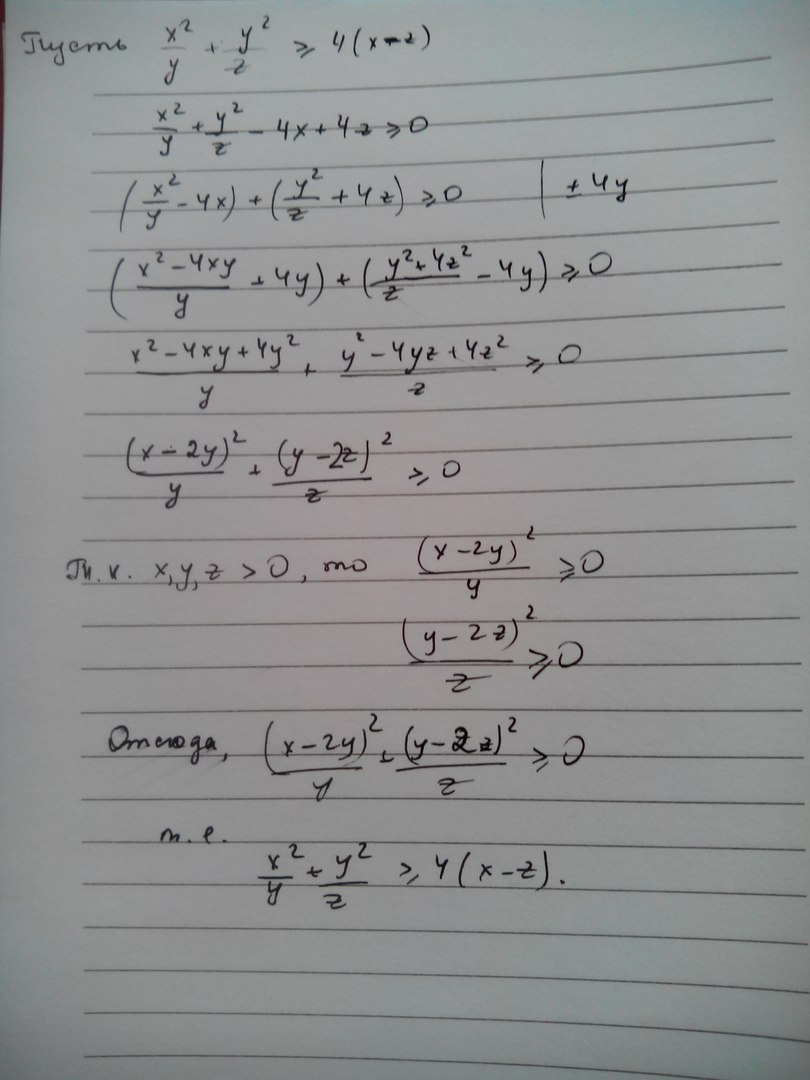 Пусть x²/y + y²/z ≥ 4(x-z)
x²/y + y²/z - 4x + 4z ≥ 0
(x²/y - 4x) + (y²/z + 4z) ≥ 0 | ± 4y
((x² - 4xy)/y + 4y) + ((y² + 4z²)/z - 4y) ≥ 0
(x² - 4xy + 4y²)/y + (y² - 4yz + 4z²)/z ≥ 0
(x - 2y)²/y + (y - 2z)²/z ≥ 0
Т.к. x, y, z > 0, то (x - 2y)²/y ≥ 0
(y - 2z)²/z ≥ 0
Отсюда, (x - 2y)²/y + (y - 2z)²/z ≥ 0
т.е.
x²/y + y²/z ≥ 4(x - z).